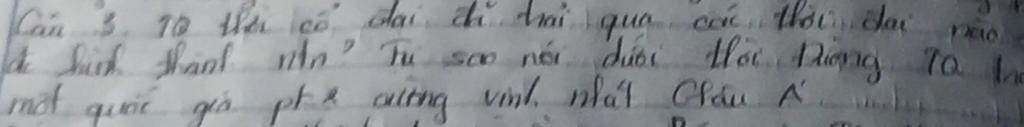 Câu 3. TQ thời cổ đại đi trải qua các thời đại nào
để hình thành ntn? Tại sao nói dưới thời Đường TQ là
một quốc gia pt cường vinh nhất Châu Á